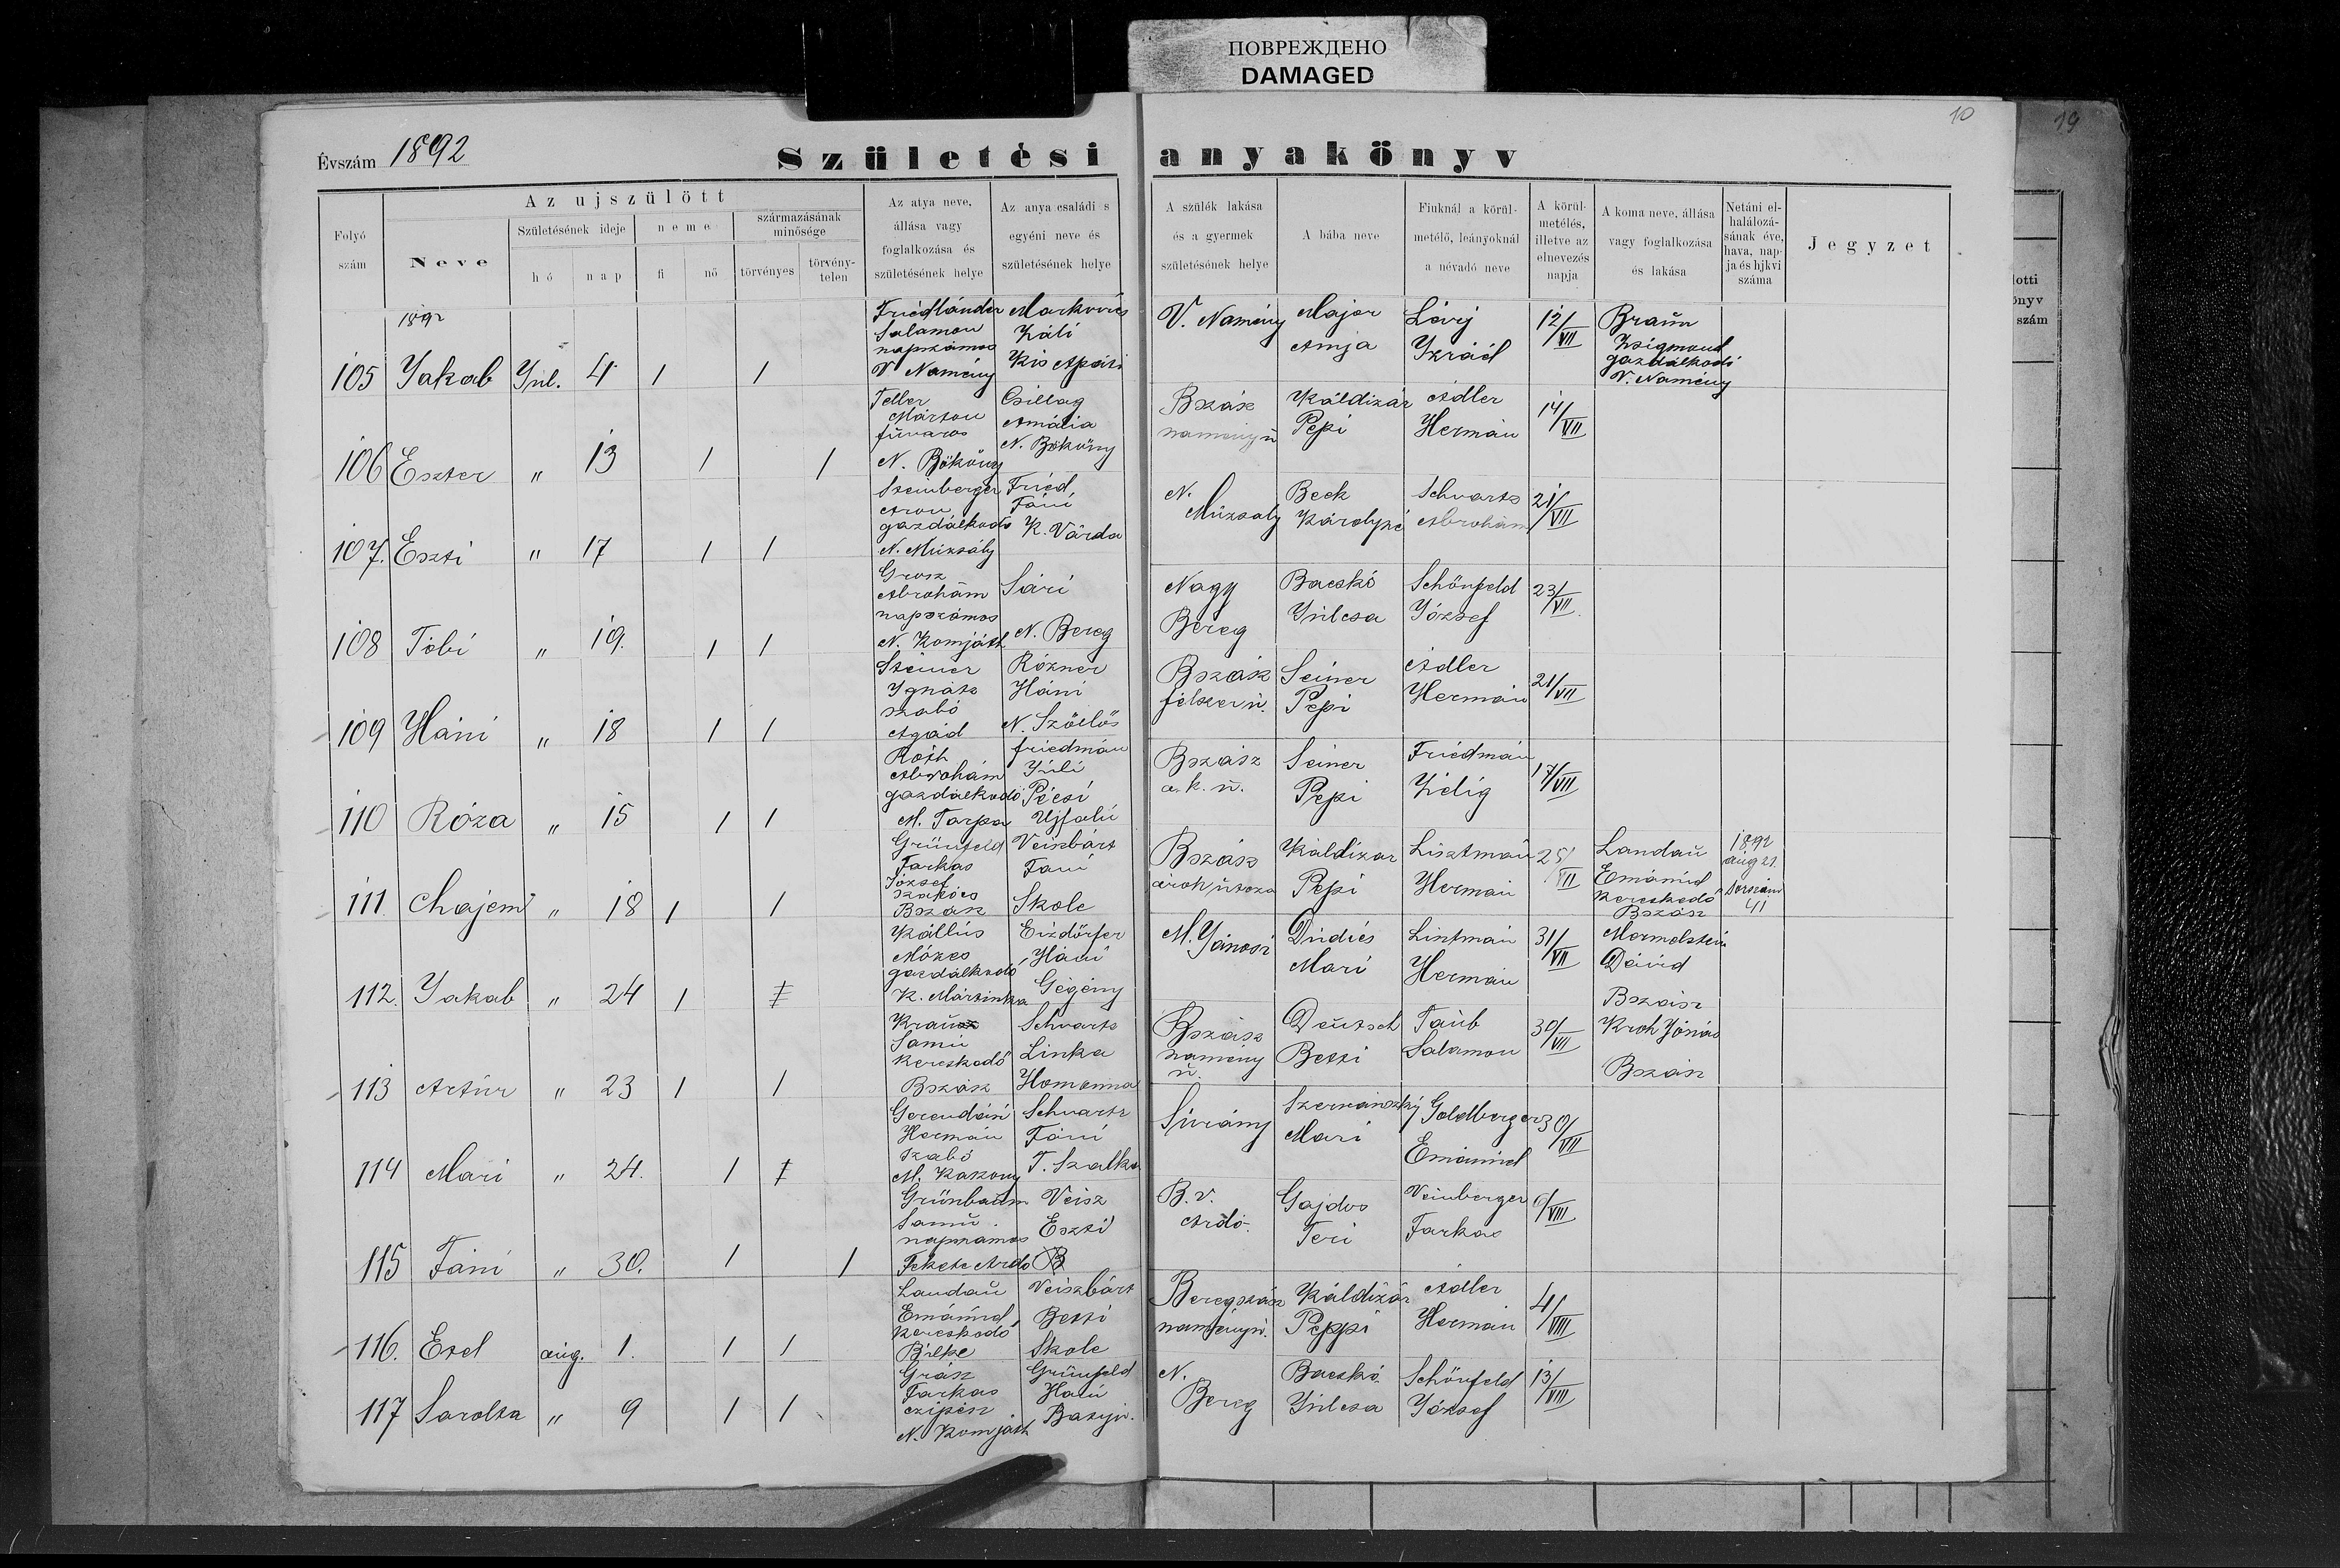 ПОВРЕЖДЕНО
DAMAGED
10
19
Évszám 1892
Születési anyakönyv
Folyó szám
Az ujszülött
Neve
Születésének ideje
hó
nap
neme
fi
nő
származásának minősége
törvényes
törvénytelen
Az atya neve, állása vagy foglalkozása és születésének helye
Az anya családi s egyéni neve és születésének helye
A szülék lakása és a gyermek születésének helye
A bába neve
Fiuknál a körülmetélő, leányoknál a névadó neve
A körülmetélés, illetve az elnevezés napja
A koma neve, állása vagy foglalkozása és lakása
Netáni elhalálozásának éve, hava, napja és hjkvi száma
Jegyzet
1892
105 Jakab Jul. 4 1 1 Friedländer Salamon napszámos V Namény Markovics Záli Kis Apáti V. Namény Major Anja Lövy Izráel 12/VII Braun Zsigmond gazdálkodó V. Namény
106 Eszter " 13 1 1 Teller Márton fuvaros N. Bökény Csillag Amália N. Bökény Bszász namény u Káldizár Pepi Adler Hermán 14/VII
107. Eszti " 17 1 1 Steinberger Áron gazdálkodó N. Muzsaly Fried Fáni K. Várda N. Muzsaly Beck Károlyné Schvartz Abrohám 21/VII
108 Tóbi " 19. 1 1 Grosz Abrohám napszámos N. Komját Sári N. Bereg Nagy Bereg Bacskó Julcsa Schönfeld József 23/VII.
109 Háni " 18 1 1 Steiner Ignátz szabó Agád Rózner Háni N. Szőllős Bszász félszer u. Seiner Pepi Adler Hermán 21/VII
110 Róza " 15 1 1 Róth Abrohám gazdálkodó M. Tarpa friedmán Juli Pécsi Ujfalu Bszász a. k. u. Seiner Pepi Friedmán Zélig 17/VII
111. Chajem " 18 1 1 Grünfeld Farkas József szakács Bszász Veiszbárt Fani Skole Bszász árok utcza Káldizar Pepi Lisztmán Hermán 25/VII Landau Emánuel kereskedő Bszász 1892 aug 21. sorszám 41
112. Jakab " 24 1 1 Kállus Mózes gazdálkodó K. Mártinka Eizdörfer Háni Gégény M. Jánosi Dudics Mari Listmán Hermán 31/VII Mermelstein Dávid Bszász
113 Artúr " 23 1 1 Krausz Samu kereskedő Bszász Schvartz Linka Homonna Bszász namény u. Deutsch Betti Taub Salamon 30/VII Kroh Jónás Bszász
114 Mari " 24. 1 1 Gerendási Hermán szabó M. Kaszony Schvartz Fáni T. Szalka Surány Szernánszky Mari Goldberger Emánuel 30/VII
115 Fáni " 30. 1 1 Grünbaum Samu. napszámos Fekete Ardó Veisz Eszti B B. v. Ardó. Gajdos Teri Veinberger Farkas 6/VIII
116. Etel aug. 1. 1 1 Landau Emánuel kereskedő Bilke Veiszbárt Betti Skole Beregszász namény u. Káldizár Peppi Adler Hermán 4/VIII
117 Sarolta " 9 1 1 Grász Farkas czipész N. Komját Grünfeld Hani Batyu. N. Bereg Bacskó Julcsa Schönfeld József 13/VIII